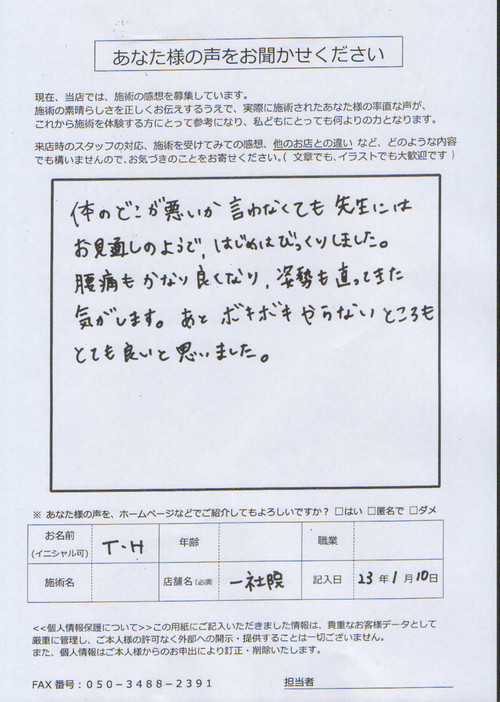 あなた様の声をお聞かせください
現在、当店では、施術の感想を募集しています。
施術の素晴らしさを正しくお伝えするうえで、実際に施術されたあなた様の率直な声が、
これから施術を体験する方にとって参考になり、私どもにとっても何よりの力となります。
来店時のスタッフの対応、施術を受けてみての感想、他のお店との違い など、どのような内容
でも構いませんので、お気づきのことをお寄せください。( 文章でも、イラストでも大歓迎です )
体のどこが悪いか 言わなくても 先生には
お見通しのようで、はじめはびっくりしました。
腰痛も かなり 良くなり、姿勢も直ってきた
気がします。あと ボキボキ やらない ところも
とても良いと思いました。
※ あなた様の声を、ホームページなどでご紹介してもよろしいですか？ □はい □匿名で □ダメ
お名前 (イニシャル可) T・H 年齢 職業
施術名 店舗名 (必須) 一社院 記入日 23 年 1 月 10 日
<<個人情報保護について>>この用紙にご記入いただきました情報は、貴重なお客様データとして
厳重に管理し、ご本人様の許可なく外部への開示・提供することは一切ございません。
また、個人情報はご本人様からのお申出により訂正・削除いたします。
FAX 番号：050－3488－2391 担当者